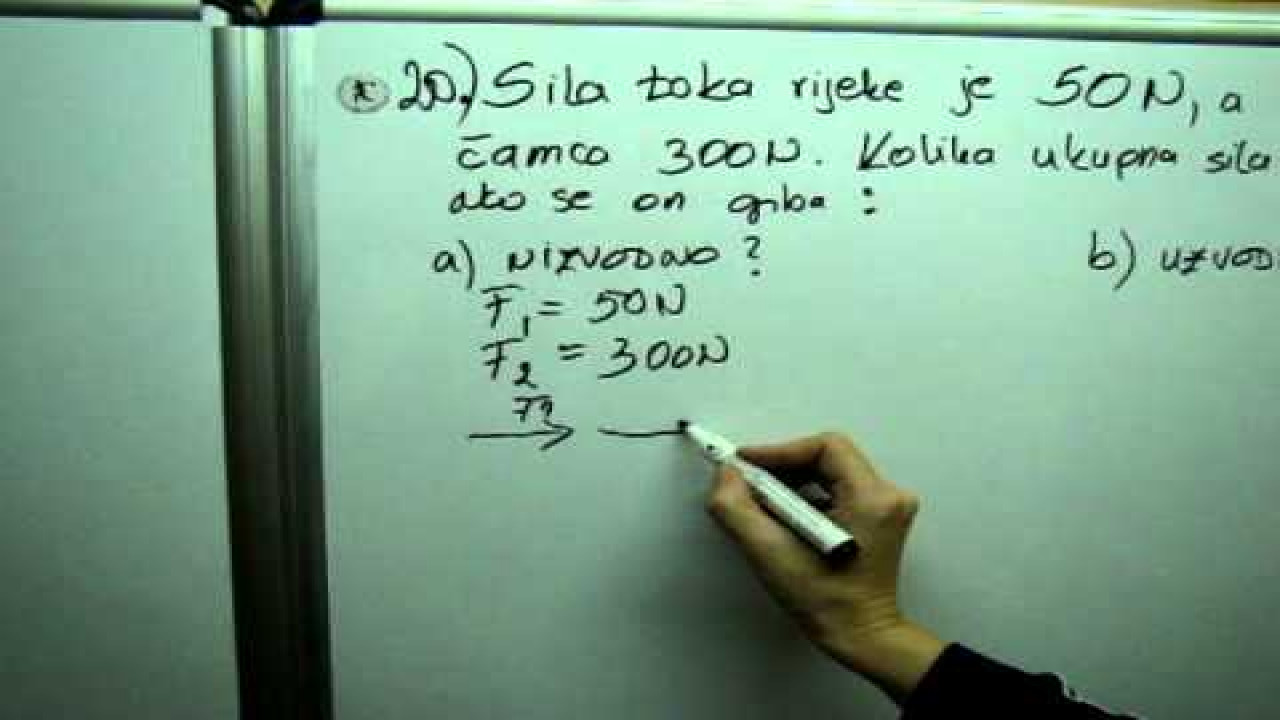 * 20.) Sila toka rijeke je 50N, a
čamca 300N. Kolika ukupna sila
ako se on giba :
a) NIZVODNO ?
b) UZVOD
F1 = 50N
F2 = 300N
F1